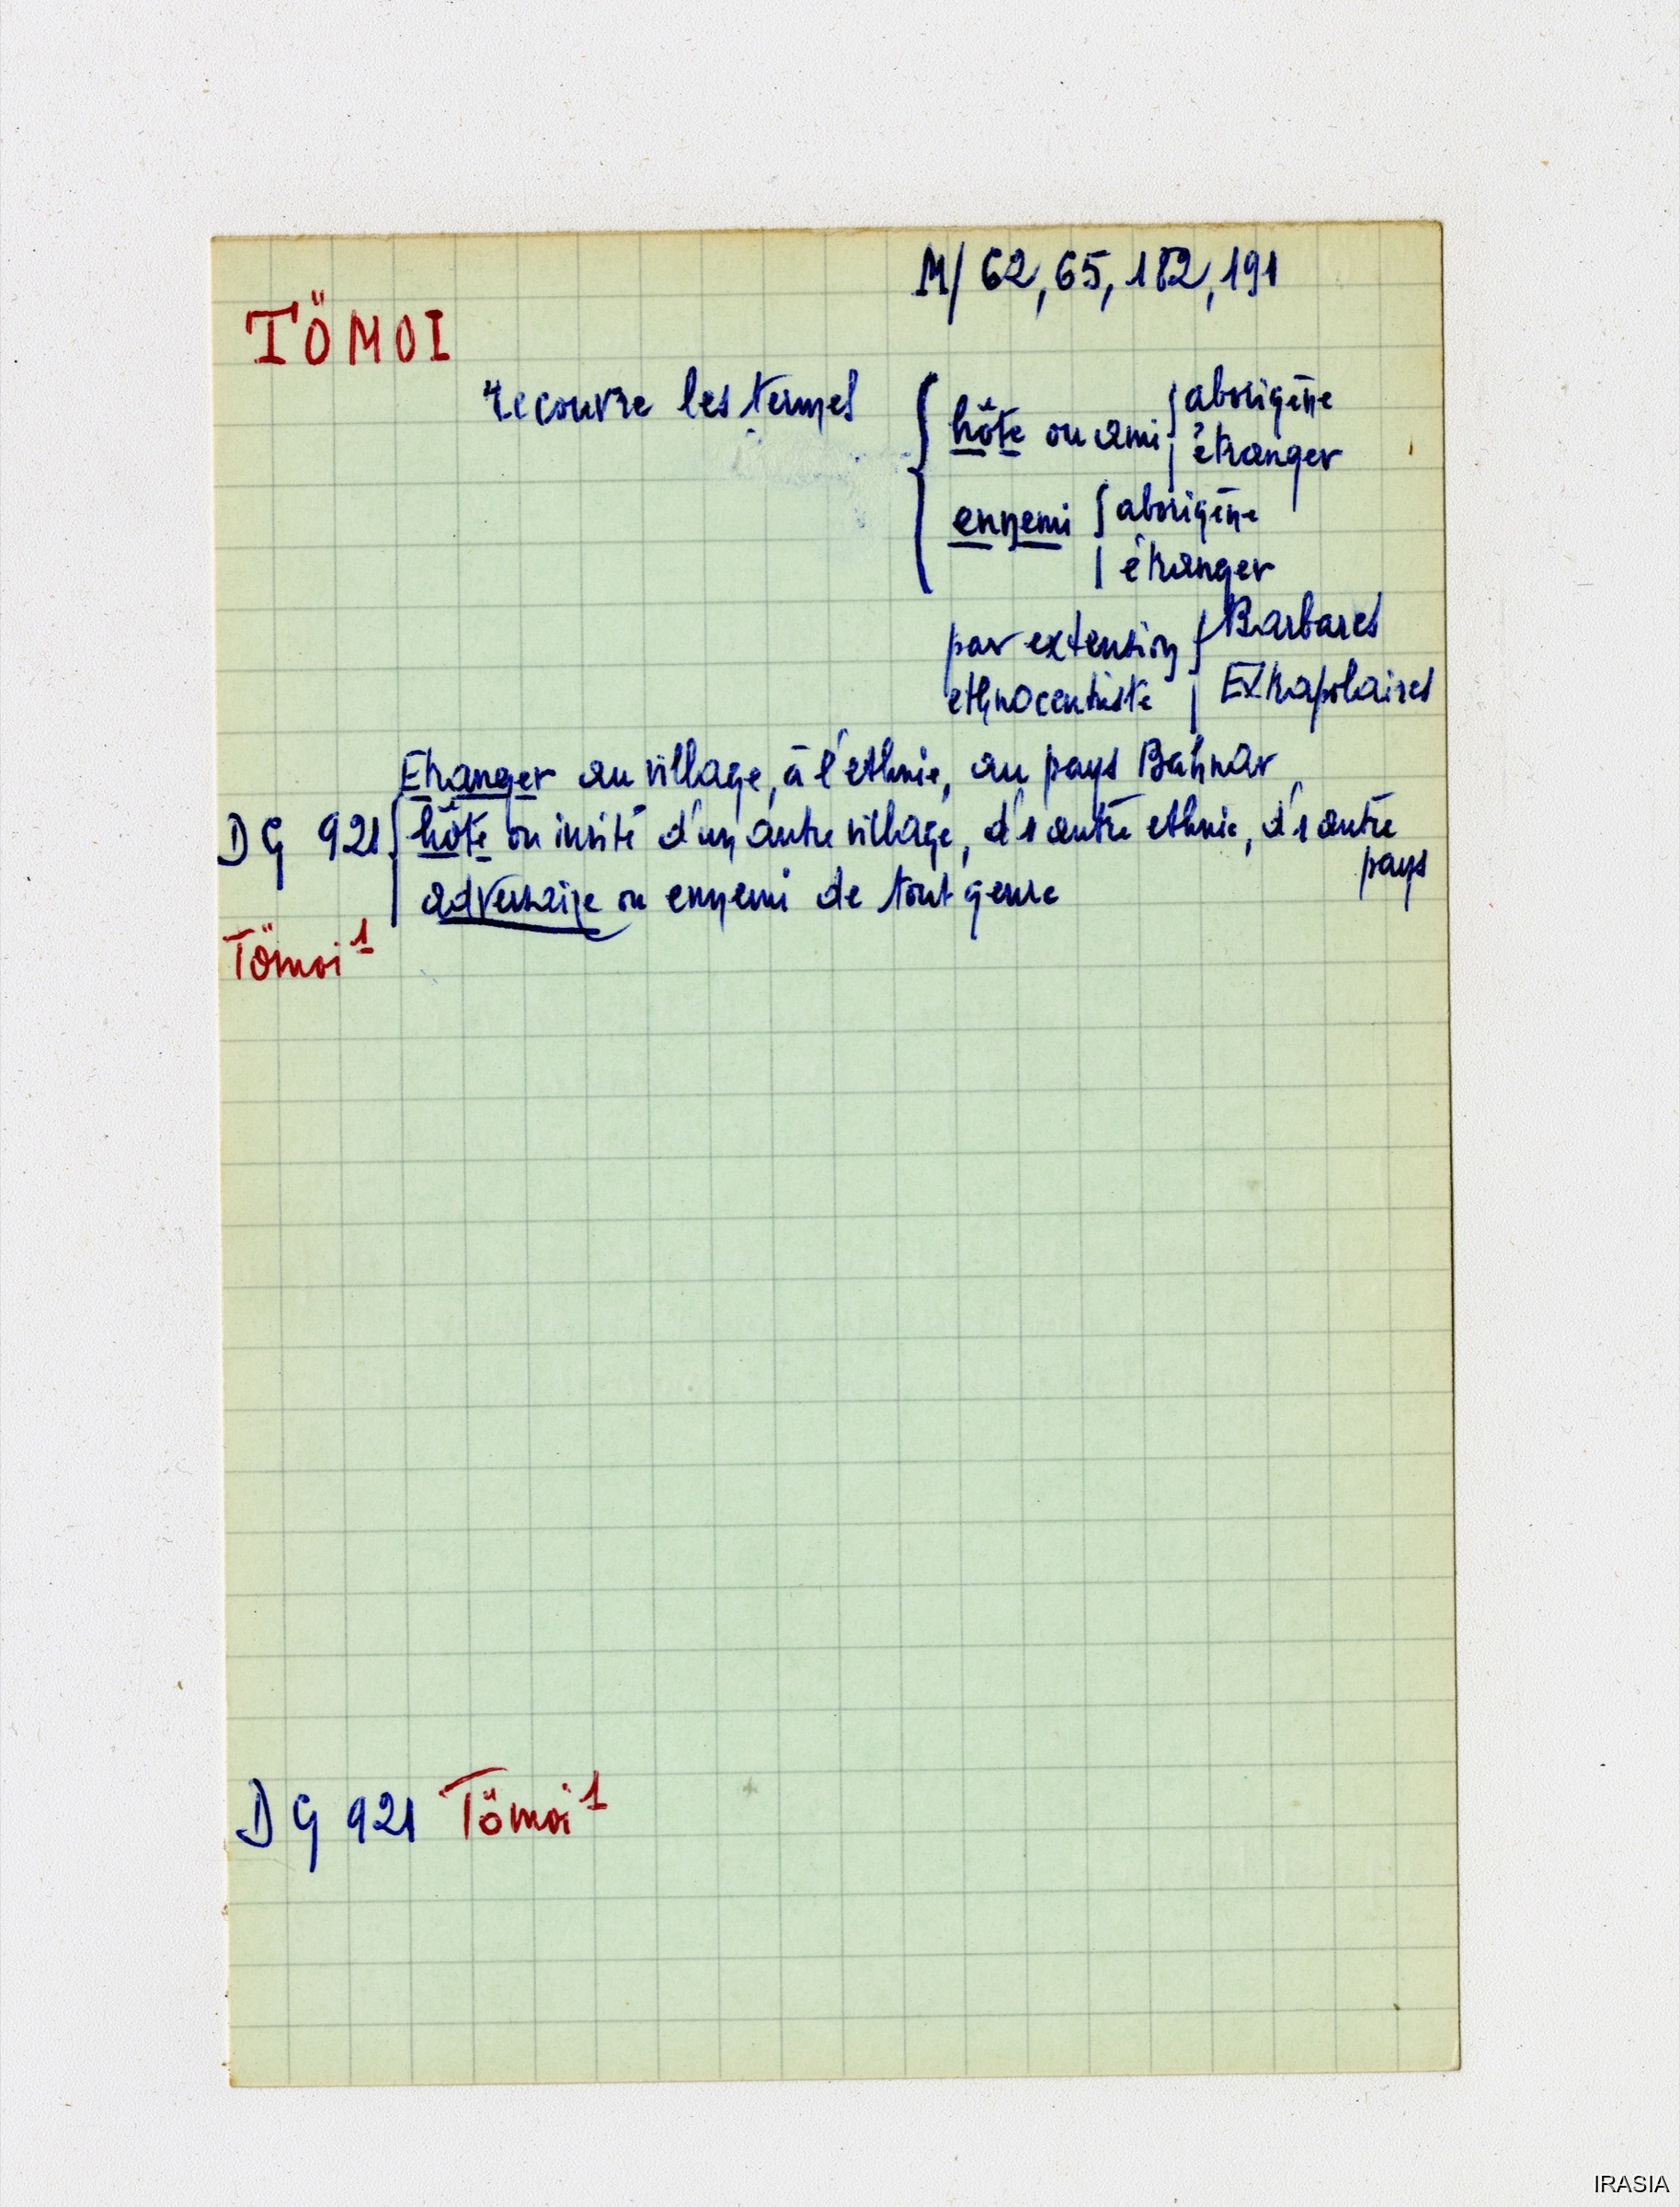 M/ 62, 65, 182, 191
TÖMOI
recouvre les termes
{ hôte ou ami { aborigène
étranger
ennemi { aborigène
étranger
par extension { Barbares
ethnocentriste Extrapolaires
Etranger au village, à l'ethnie, au pays Bahnar
DG 921 { hôte ou invité d'un autre village, d'1 autre ethnie, d'1 autre
pays
adversaire ou ennemi de tout genre
Tömoi 1
DG 921 Tömoi 1
IRASIA